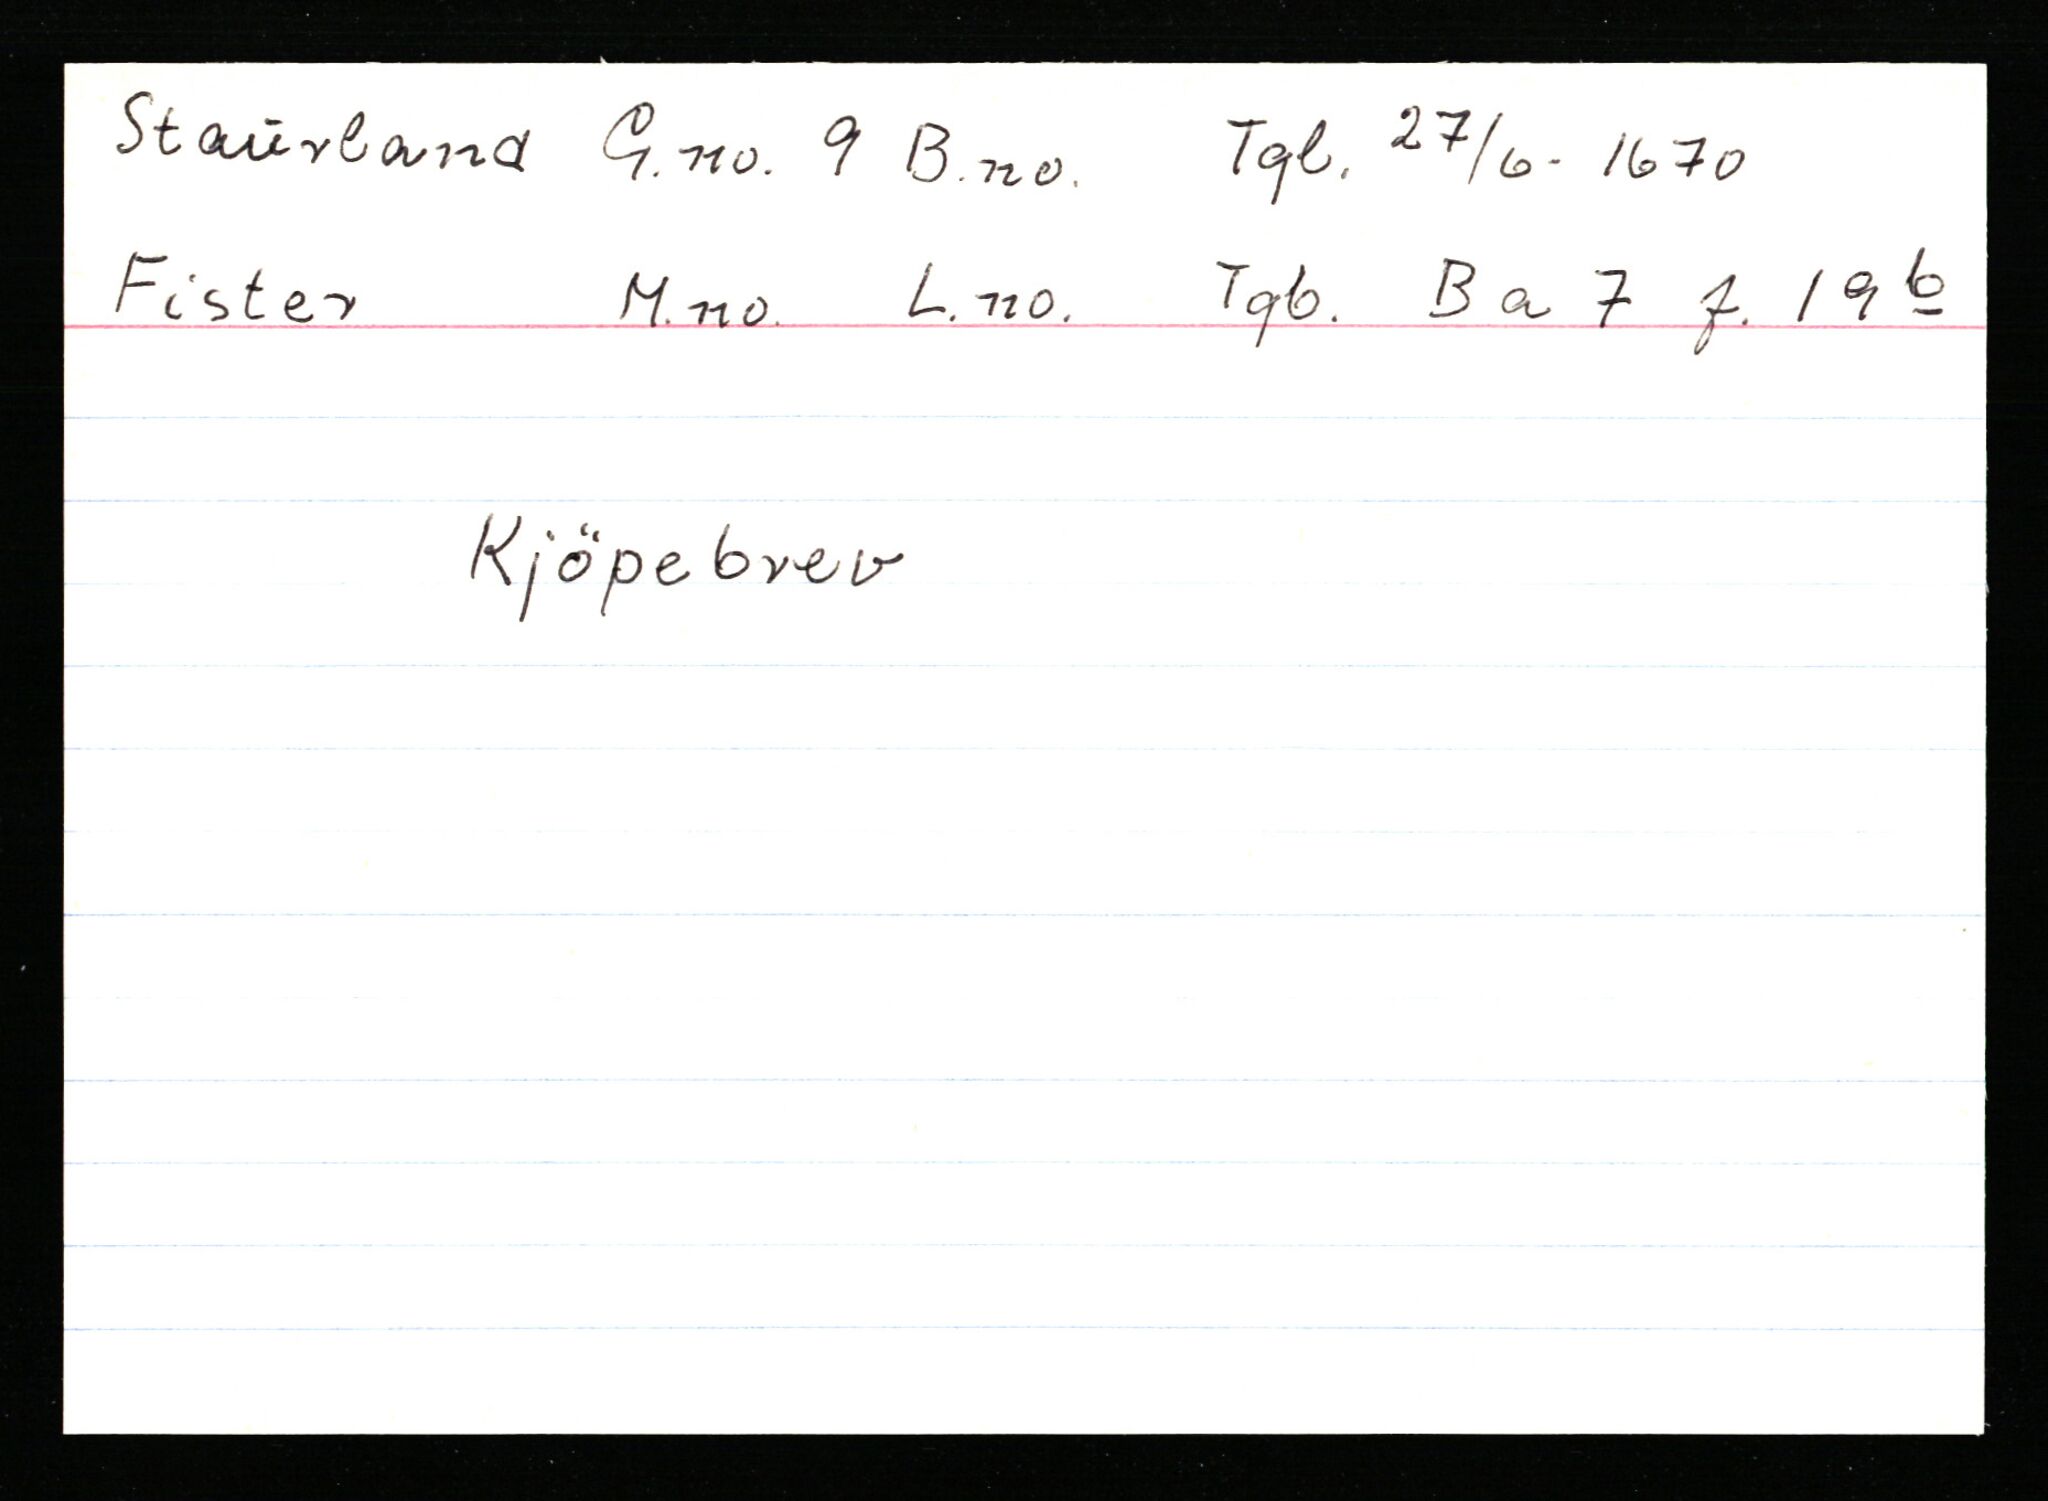 Staurland G.no. 9 B.no. Tgl. 27/6- 1670
Fister M.no. L.no. Tgb. B a 7 f. 19b
Kjöpebrev